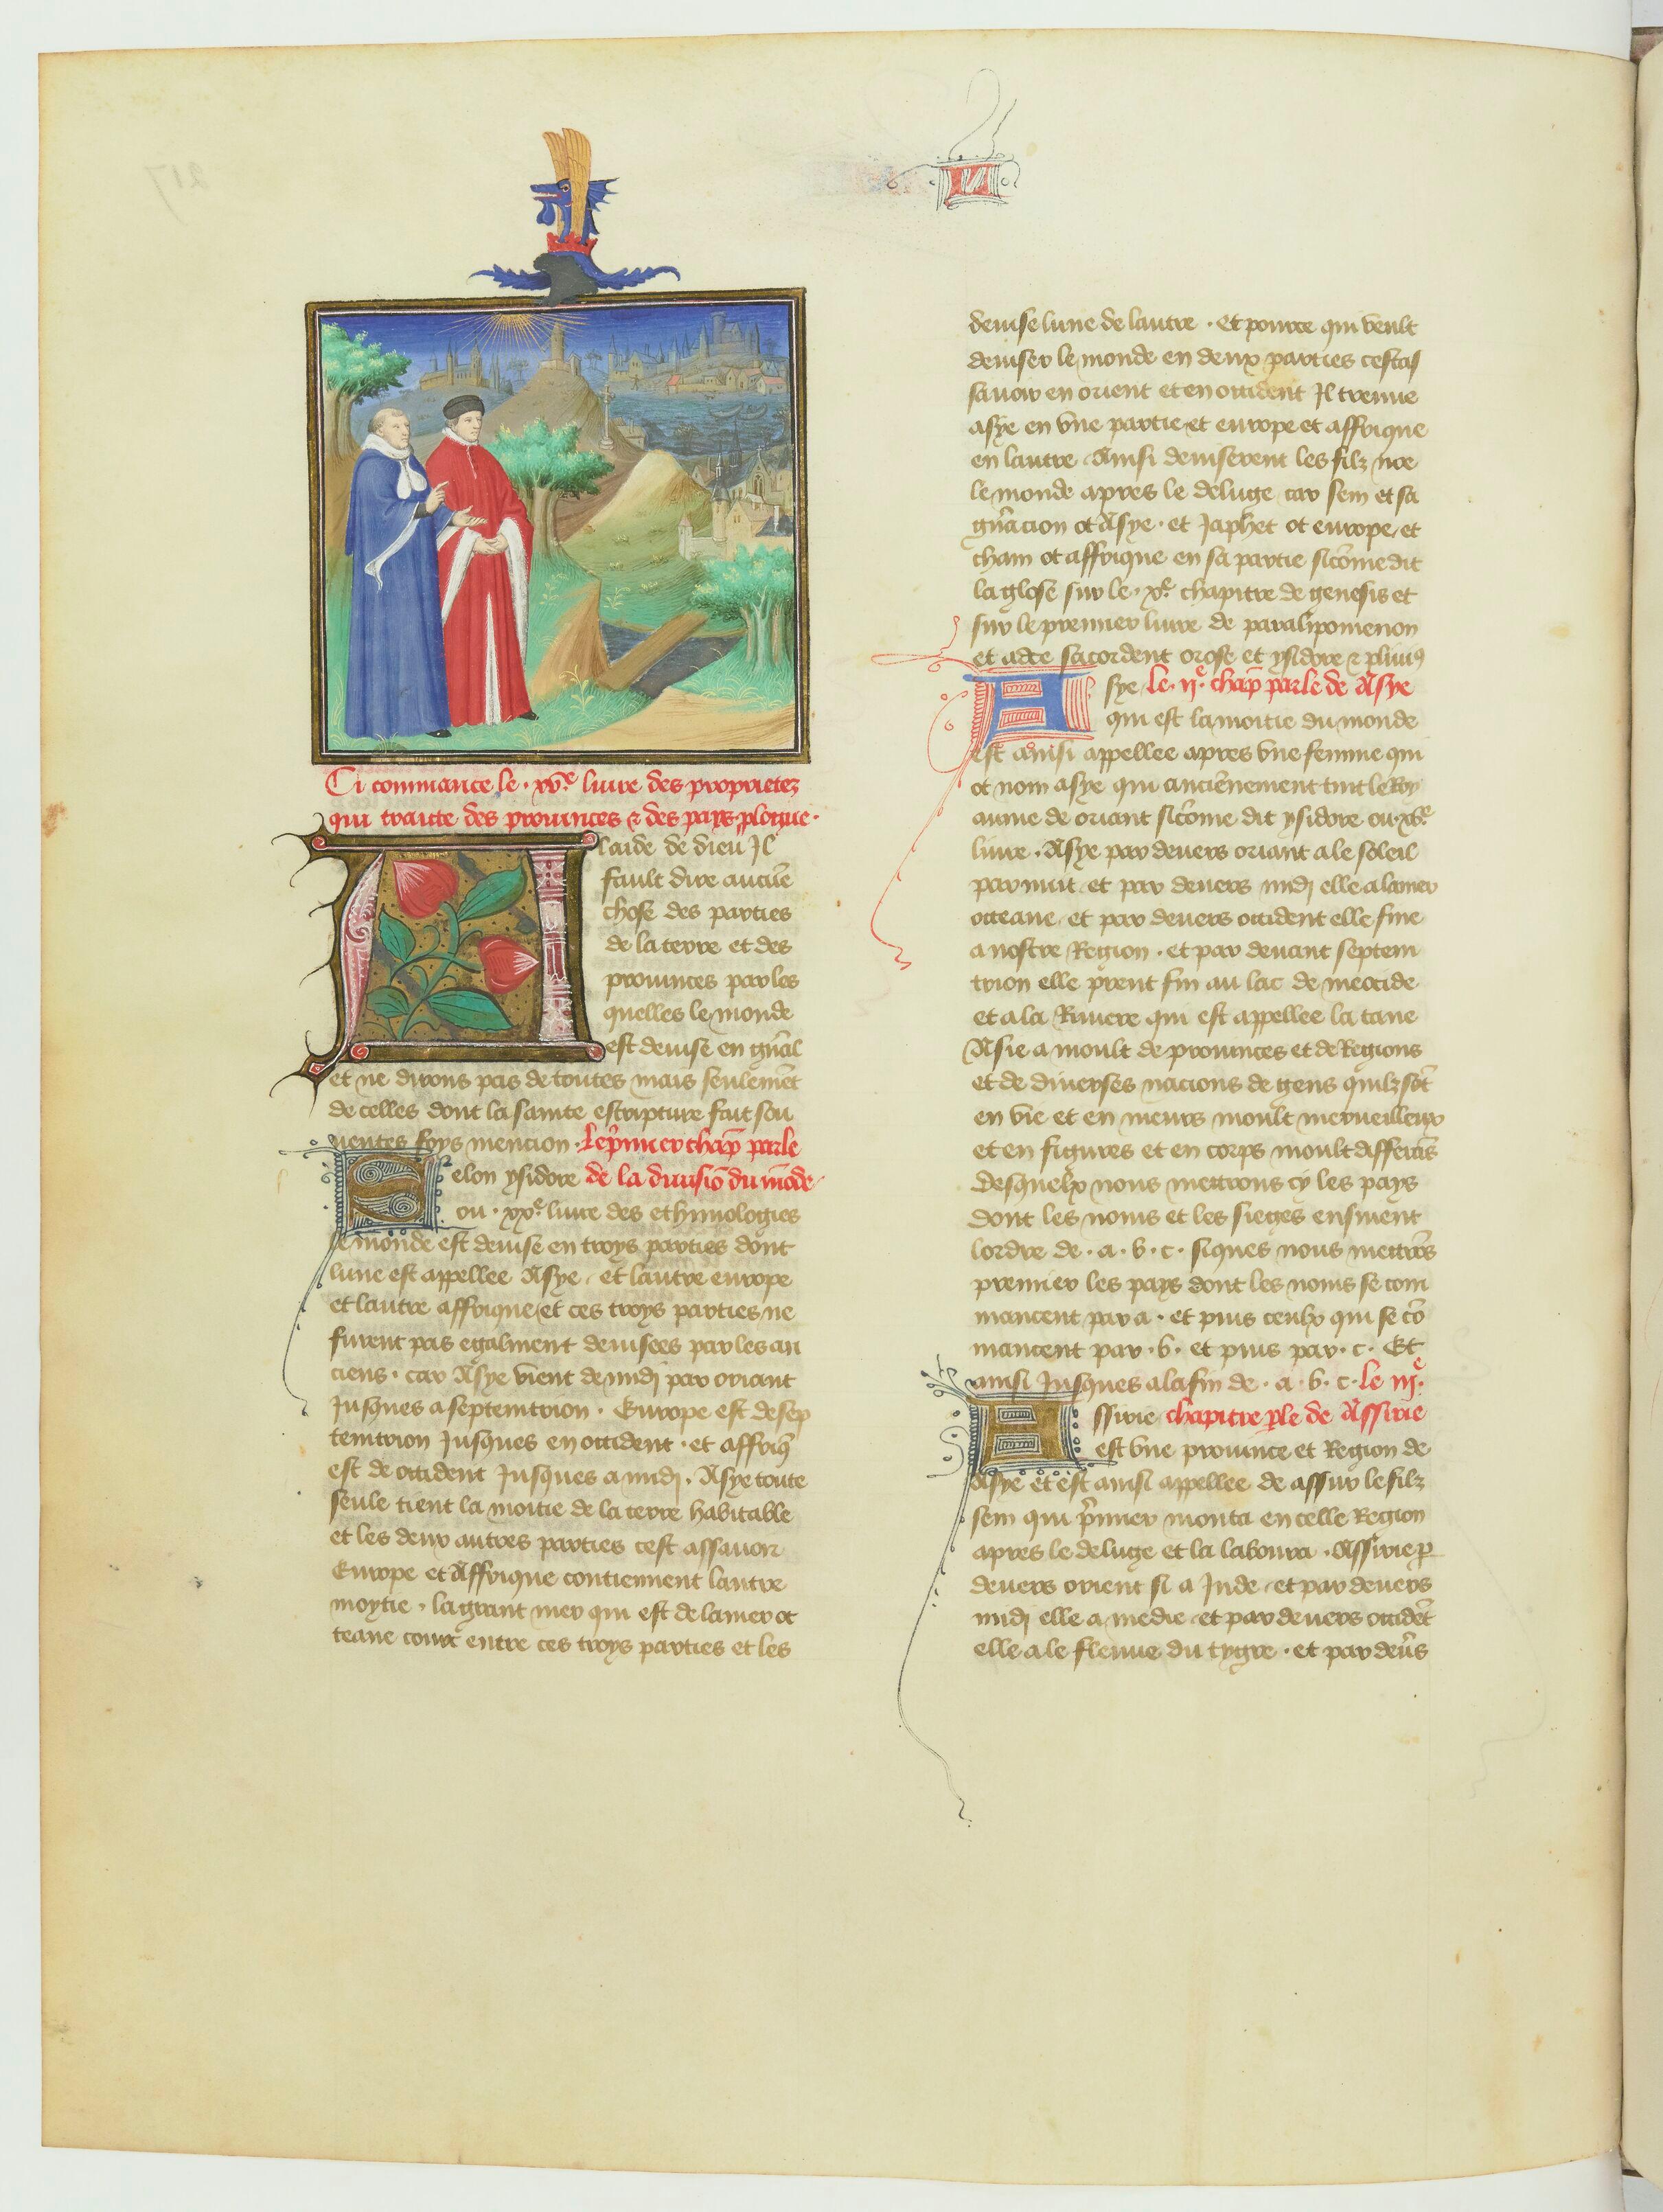 Ci commance le · xv.e livre des proprietez
qui traicte des provinces & des pays ploque ·
A laide de dieu Il
fault dire aucūe
chose des parties
de la terre et des
provinces par les
quelles le monde
est devise en gn̄al
et ne dirons pas de toutes mais seulemēt
de celles dont la sainte escripture fait sou
ventes foys mencion · le p̄mier chap̄ parle
Selon ysidore de la divisiō du mōde ·
ou · xx.e livre des ethimologies
le monde est devise en troys parties dont
lune est appellee Asye · et lautre europe
et lautre affrique et ces troys parties ne
furent pas egalment devisees par les an
ciens · car Asye vient de midj par oriant
Jusques a septemtrion · Europe est de sep
temtrion Jusques en occident · et affriq̄
est de occident Jusques a midj · Asye toute
seule tient la moitie de la terre habitable
et les deux autres parties cest assavoir
Europe et Affrique contiennent lautre
moytie · la grant mer qui est de la mer oc
ceane court entre ces troys parties et les
devise lune de lautre · et pource qui veult
deviser le monde en deux parties cestas
savoir en orient et en occident Il treuve
asye en une partie et europe et affrique
en lautre · Ainsi deviserent les filz noe
le monde apres le deluge car sem et sa
gn̄acion ot Asye · et Japhet ot europe et
cham ot affrique en sa partie sicōme dit
la glose sur le · x.e chapitre de genesis et
sur le premier livre de paralipomenon
et adce sacordent orose et ysidore & plinius
Asye le · ij.e chap̄ parle de Asye
qui est la moitie du monde
est ainsi appellee apres une femme qui
ot nom asye qui anciēnement tint le Roy
aume de oriant sicōme dit ysidore ou · xv.e
livre · Asye par devers oriant a le soleil
par nuit · et par devers midj elle a la mer
occeane · et par devers occident elle fine
a nostre Region · et par devant septem
trion elle prent fin au lac de meotide
et a la Riviere qui est appellee la tane
Asie a moult de provinces et de Regions
et de diverses nacions de gens quilz sōt
en vie et en meurs moult merveilleux
et en figures et en corps moult differās
desquelx nous mettrons cy les pays
dont les noms et les sieges ensuient
lordre de · a · b · c · siques nous mettrōs
premier les pays dont les noms se com
mancent par a · et puis ceulx qui se cō
mancent par · b · et puis par · c · Et
ainsi Jusques a la fin de · a · b · c · le iij.e
Assirie chapitre ple de Assirie
est une province et Region de
Asye et est ainsi appellee de assur le filz
sem qui p̄mier monta en celle Region
apres le deluge et la laboura · Assirie p
devers orient si a Jnde · et par devers
midj elle a medie · et par devers occidēt
elle a le fleuve du tygre · et par dev̄s